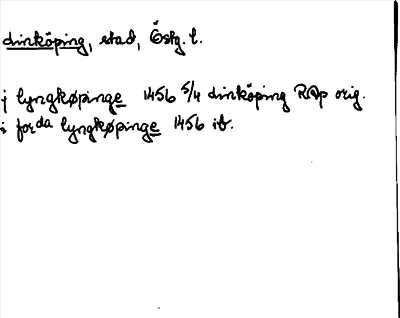 Linköping, stad, Östg. l.
j lyngkøpinge 1456 5/4 Linköping RAp orig.
i forda lyngkøpinge 1456 ib.